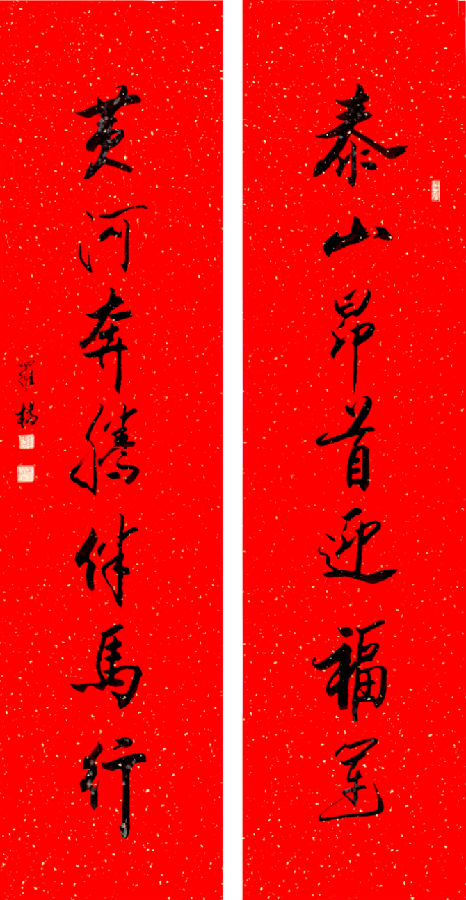 泰山昂首迎福運
黄河奔騰伴馬行
羅楊